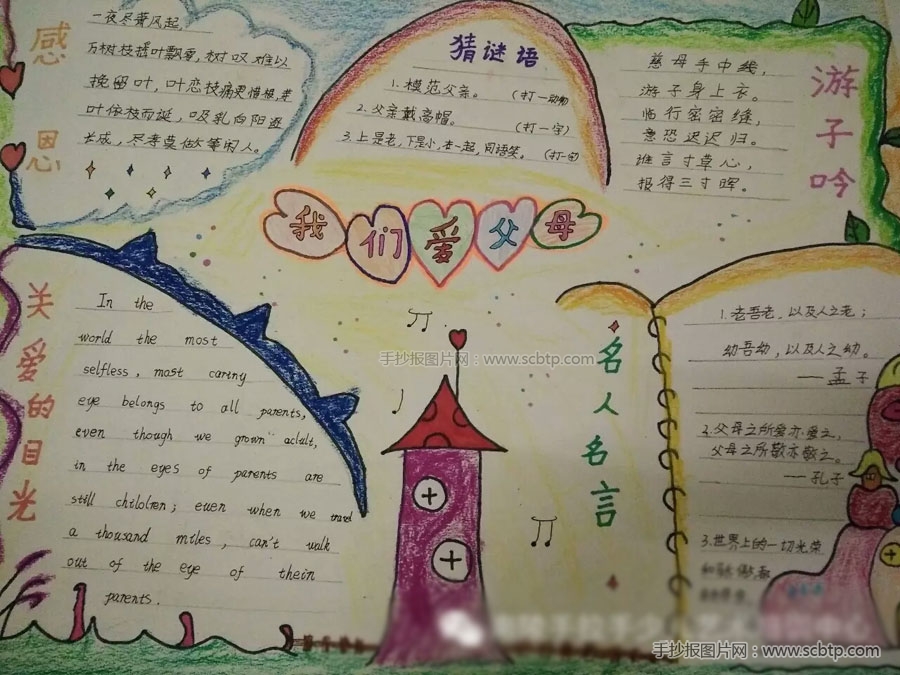 感恩
一夜尽萧风起,
万树枝摇叶飘零,树叹难以
挽留叶,叶恋枝病更惜根,
叶依枝而诞,吸乳向阳逐
长成,尽孝莫
等闲人。
猜谜语
1.模范父亲。 (打一动物)
2.父亲戴高帽。 (打一字)
3.上是老,下是小,在一起,同语笑。 (打一字)
游子吟
慈母手中线,
游子身上衣。
临行密密缝,
意恐迟迟归。
谁言寸草心,
报得三寸晖。
我们爱父母
关爱的目光
In the
world the most
selfless, most caring
eye belongs to all parents,
even though we grown aclult,
in the eyes of parents are
still chilolren; euen when we travel
a thousand mtles, can't walk
out of the eye of thein
parents.
名人名言
1.老吾老,以及人之老;
幼吾幼,以及人之幼。
——孟子
2.父母之所爱亦爱之,
父母之所敬亦敬之。
——孔子
3.世界上的一切光荣
和骄傲
手抄报图片网:www.scbtp.com
手抄报图片网:www.scbtp.com